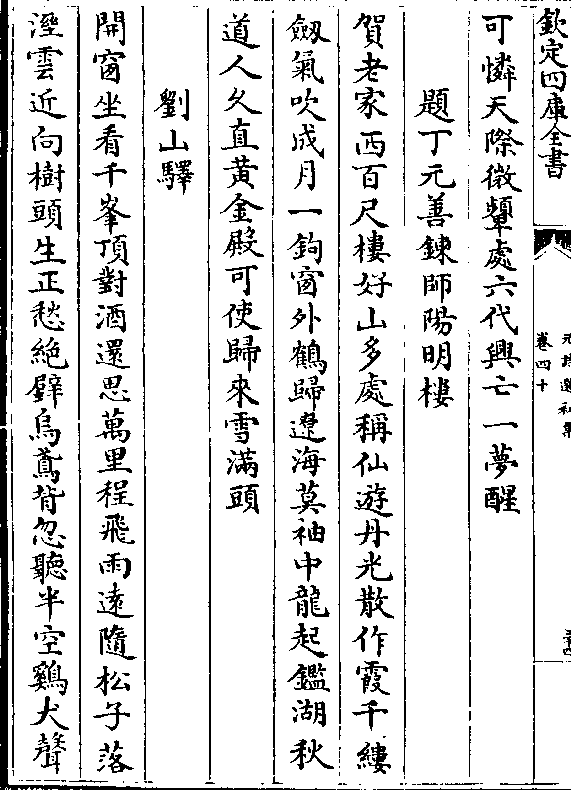 欽定四庫全書
卷四十
可憐天際微顰處六代興亡一夢醒
題丁元善鍊師陽明樓
賀老家西百尺樓好山多處稱仙遊丹光散作霞千縷
劔氣吹成月一鉤窗外鶴歸遼海莫袖中龍起鑑湖秋
道人久直黄金殿可使歸來雪滿頭
劉山驛
開窗坐看千峯頂對酒還思萬里程飛雨遠隨松子落
溼雲近向樹頭生正愁絶壁烏鳶背忽聽半空鷄犬聲